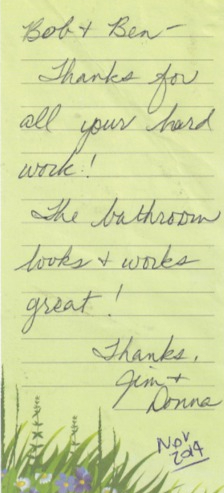 Bob & Ben -
Thanks for
all your hard
work!
The bathroom
looks & works
great!
Thanks,
Jim &
Donna
Nov
2014